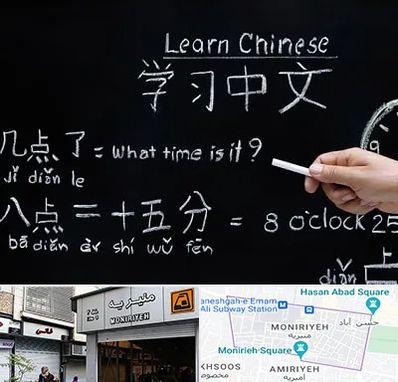 Learn Chinese
学习中文
几点了 = What time is it?
jǐ diǎn le
9
八点二十五分 = 8 o'clock 25
bā diǎn èr shí wǔ fēn
diǎn
上
منیریه
MONIRIYEH
Hasan Abad Square
حسن آباد
aneshgah-e Emam
Ali Subway Station
MONIRIYEH
منیریه
Monirieh Square
KHSOOS
مخصوص
AMIRIYEH
امیریه